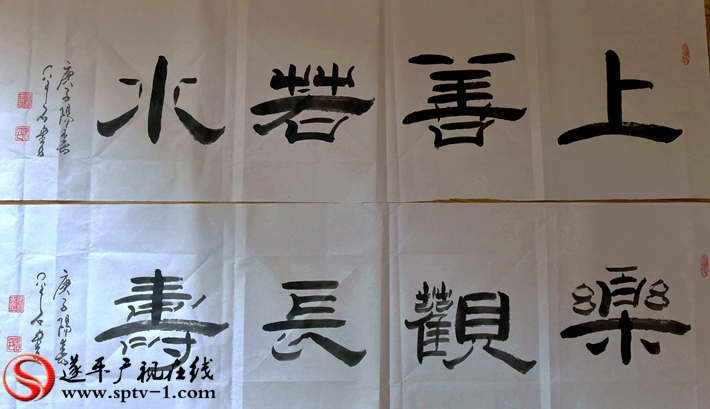 上善若水
庚子陽春
樂觀長壽
庚子陽春
遂平广视在线
www.sptv-1.com